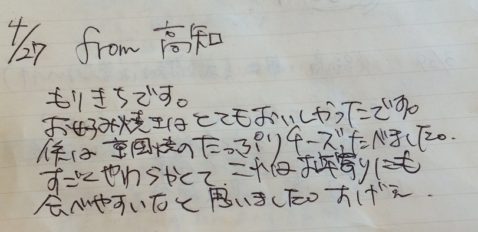 4/27 from 高知
もりきちです。
お好み焼きはとてもおいしかったです。
係は 焼のたっぷりチーズたべました。
すごくやわらかくて これはお年寄りにも
食べやすいなと思いました。おしげぇ.